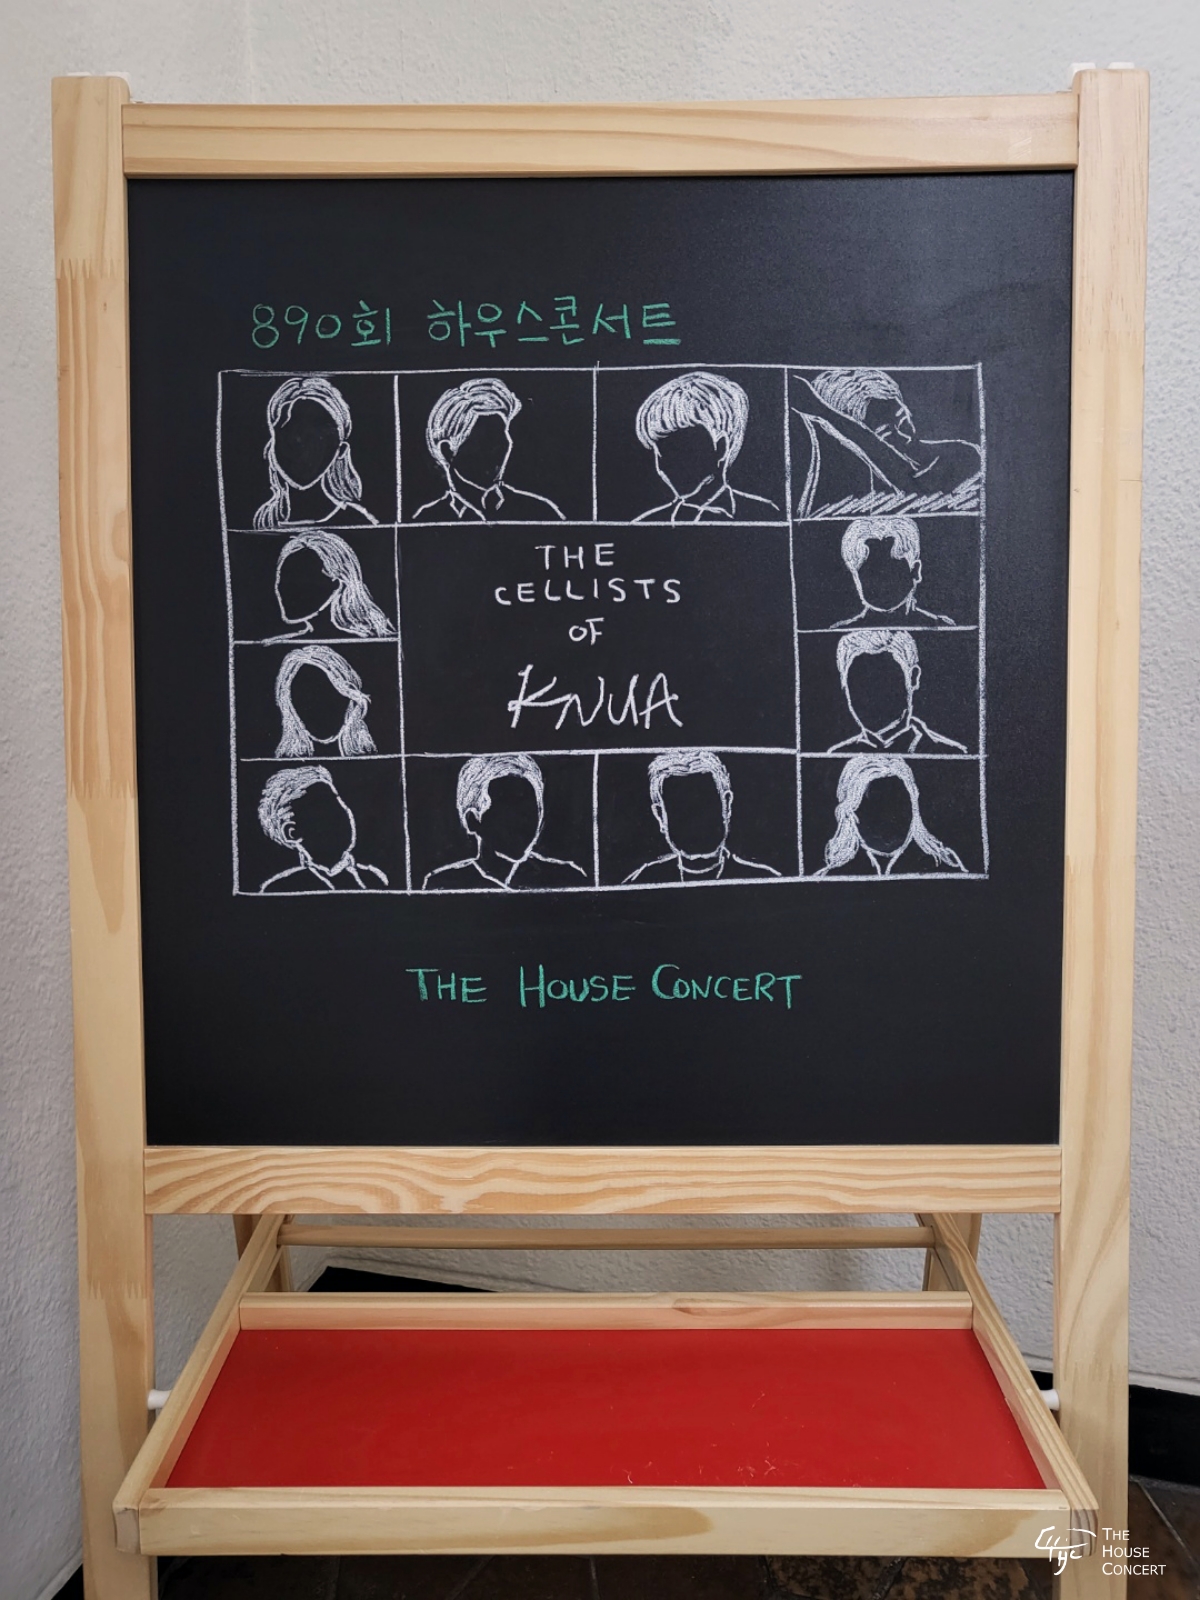 890회 하우스콘서트
THE
CELLISTS
OF
KNUA
THE HOUSE CONCERT
THE
HOUSE
CONCERT